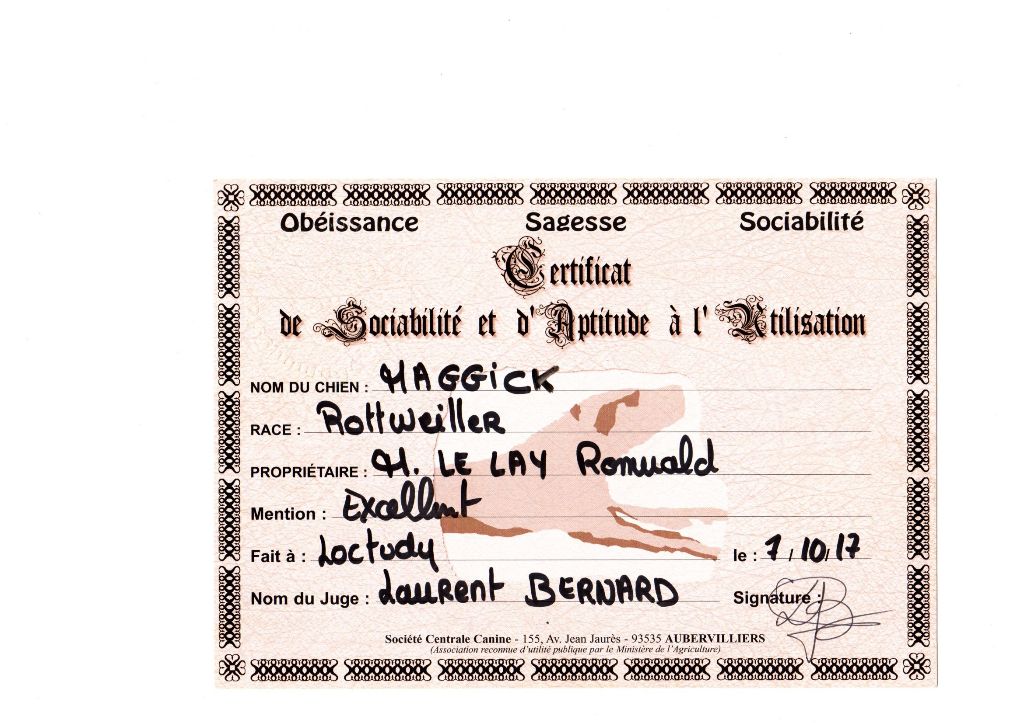 Obéissance Sagesse Sociabilité
Certificat
de Sociabilité et d'Aptitude à l'Utilisation
NOM DU CHIEN : MAGGICK
RACE : Rottweiller
PROPRIÉTAIRE : M. LE LAY Romuald
Mention : Excellent
Fait à : Loctudy le : 7/10/17
Nom du Juge : Laurent BERNARD Signature :
Société Centrale Canine - 155, Av. Jean Jaurès - 93535 AUBERVILLIERS
(Association reconnue d'utilité publique par le Ministère de l'Agriculture)